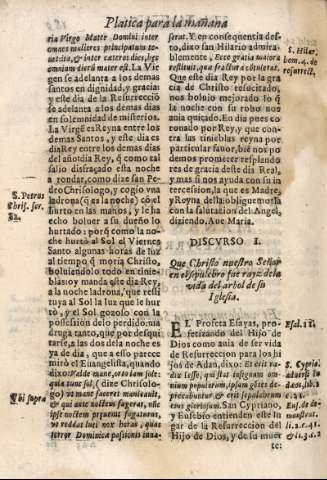 Platica para la mañana
ria Virgo Mater Domini inter
omnes mulieres principatum te-
nuit, & inter cæteros dies, hæc
omnium dierũ mater est. La Vir
gen se adelanta a los demas
santos en dignidad, y gracia:
y este dia de la Resurrecciõ
se adelanta a los demas dias
en solemnidad de misterios.
La Virgẽ es Reyna entre los
demas Santos, y este dia es
dia Rey entre los demas dias
del año: dia Rey, q̃ como tal
salio disfraçado esta noche
a rondar, como dize san Pe-
S. Petrus
Chris. ser.
82.
dro Chrisologo, y cogio vna
ladrona (q̃ es la noche) cõ el
hurto en las manos, y le ha
echo boluer a su dueño lo
hurtado: porq̃ como la no-
che hurtò al Sol el Viernes
Santo algunas horas de luz
al tiempo q̃ moria Christo,
boluiendolo todo en tinie-
blas: oy manda q̃ este dia Rey,
a la noche ladrona, que resti
tuya al Sol la luz que le hur
to, y el Sol gozoso con la
possession de lo perdido: ma
druga tanto, que por desqui-
tarse, a las dos de la noche es
ya de dia, que a esso parece
mirò el Euangelista, quando
dixo:
gia nunc sol, (dize Chrisolo-
Vbi supra
go) vt mane faceret manicasse,
& qui ante noctem fugerat, nũc
ipse noctem pœnitet fugaturus,
vt reddat luci nox horas, quas
terror Dominicæ passionis inua-
serat. Y en consequencia des-
to, dixo san Hilario admira-
S. Hilar.
hom. 4. de
resurrect.
blemente, Ecce gratia maiora
restituit, quæ fractura abstulerat.
Que este dia Rey por la gra
cia de Christo resucitado,
nos boluio mejorado lo q̃
la noche con su robo nos
auia quitado. En dia pues co
ronado por Rey, y que con-
tra las tinieblas reyna por
particular fauor, biẽ nos po
demos prometer resplando
res de gracia deste dia Real,
y mas si nos ayuda con su in-
tercession, la que es Madre,
y Reyna della: obliguemosla
con la salutacion del Angel,
diziendo. Aue Maria.
DISCVRSO I.
Que Christo nuestro Señor
en el sepulcro fue rayz de la
vida del arbol de su
Iglesia.
EL Profeta Esayas, pro-
fetizando del Hijo de
Esai. 11.
Dios como auia de ser vida
de Resurreccion para los hi
jos de Adan, dixo: Et erit ra-
dix Iesse, qui stat in signum om-
nium populorum, ipsum gẽtes de-
precabuntur & erit sepulchrum
eius gloriosum. San Cypriano,
S. Cypria.
aduers. Iu
dæos, lib.
2. c. 21.
Eus. de de-
monstrat.
li. 2. c. 41.
li. 3. c. 2.
y Eusebio entienden este lu
gar de la Resurreccion del
Hijo de Dios, y de su muer
te: